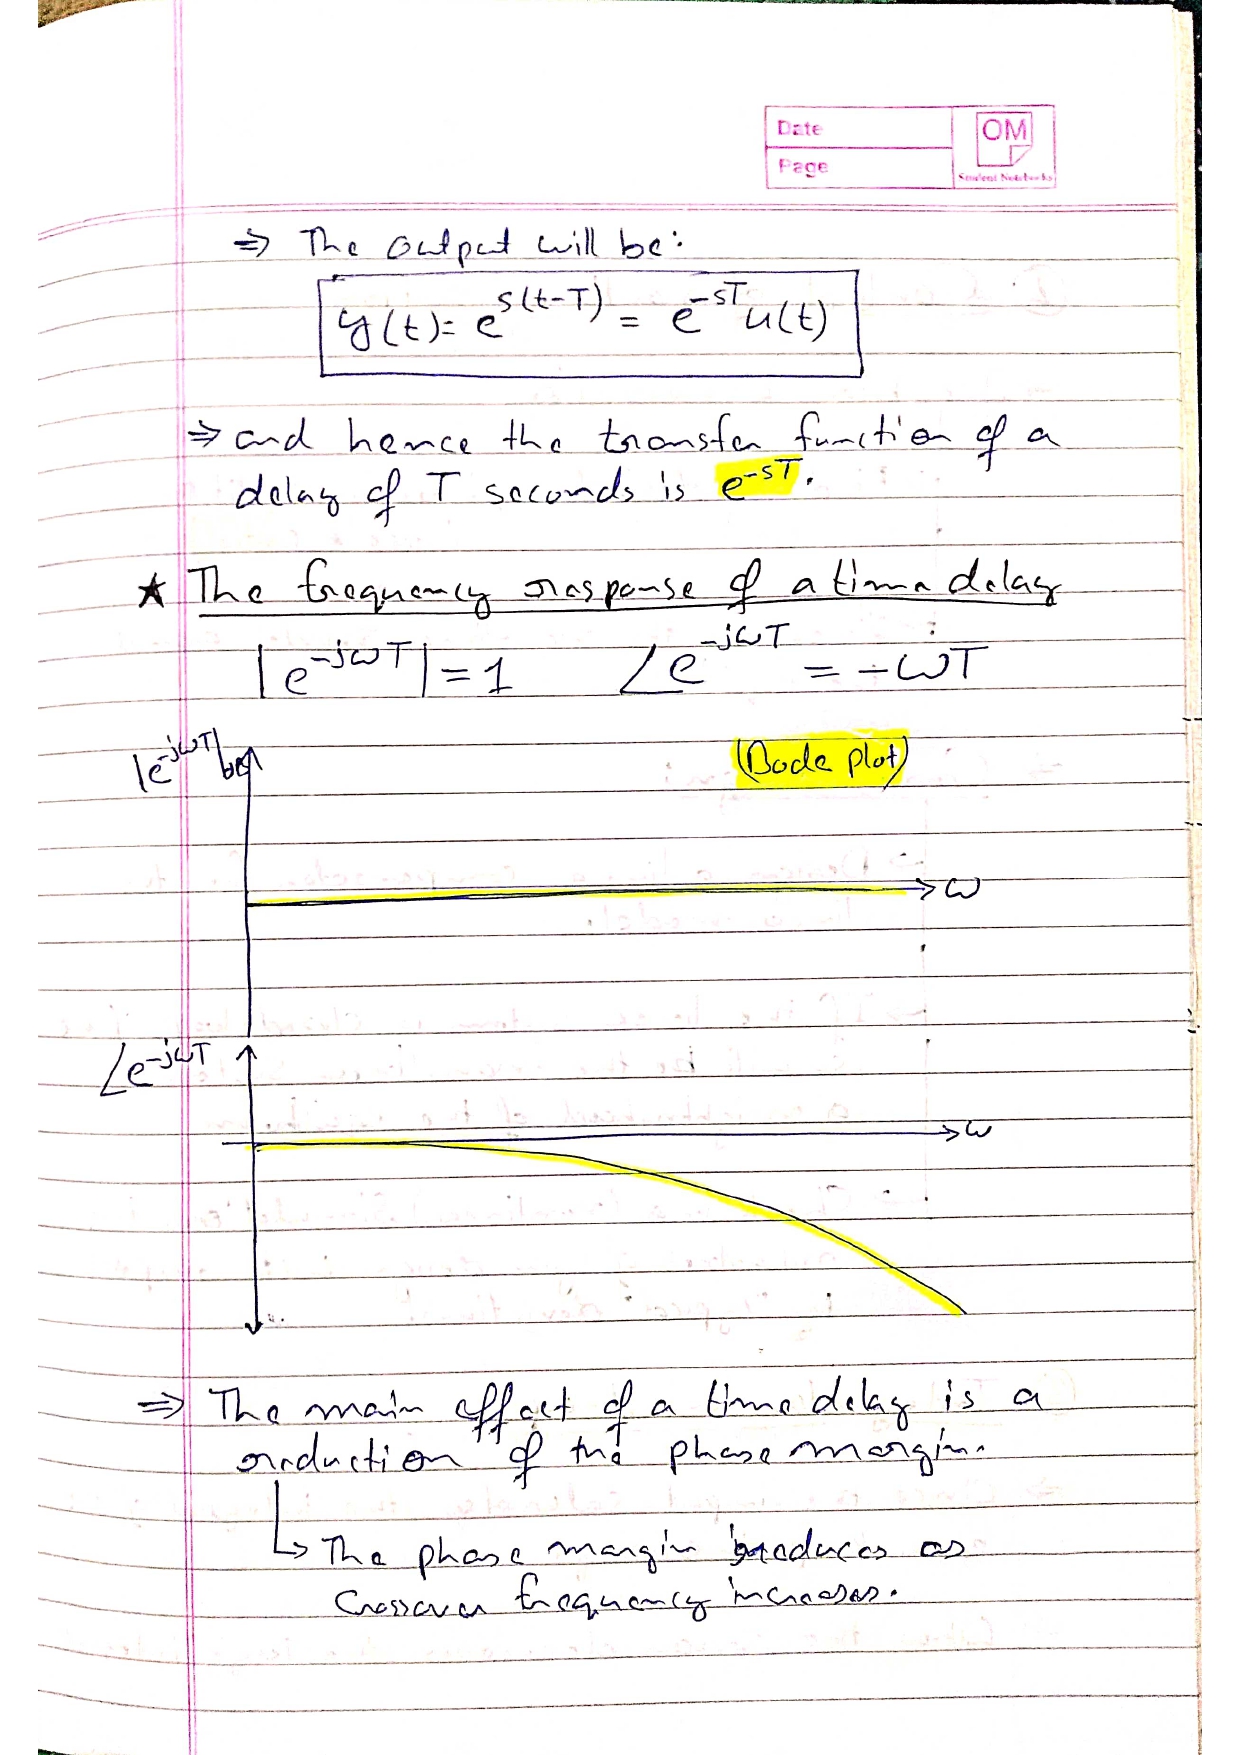 Date
OM
Page
Student Notebooks
⇒ The output will be:
y(t)= e^s(t-T) = e^-sT u(t)
⇒ and hence the transfer function of a
delay of T seconds is e^-sT.
★ The frequency response of a time delay
|e^-jωT| = 1 ∠e^-jωT = -ωT
|e^-jωT|
(Bode plot)
ω
∠e^-jωT
ω
⇒ The main effect of a time delay is a
reduction of the phase margin.
↳ The phase margin reduces as
crossover frequency increases.